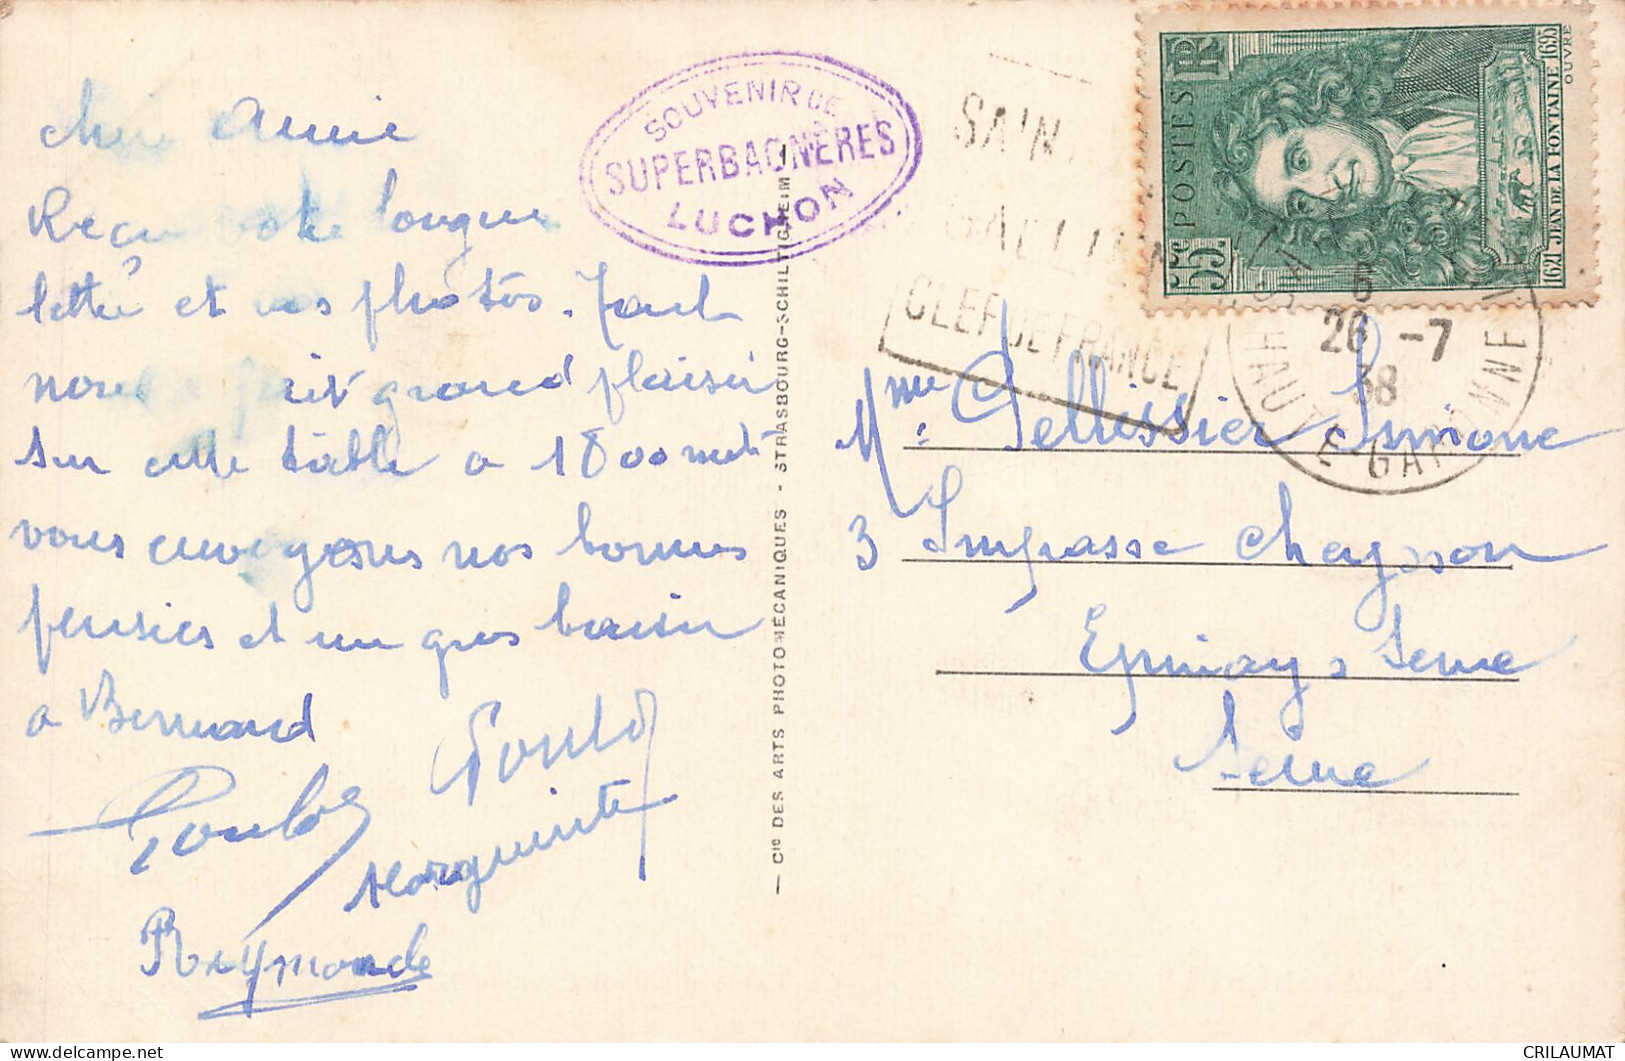 Reçu votre longue
lettre et vos photos.
nous fait grand plaisir
sur cette table a 1800 met
vous envoyons nos bonnes
pensées et un gros baiser
a Bernard
Marguerite
Raymonde
SOUVENIR DE
SUPERBAGNÈRES
LUCHON
— Cie DES ARTS PHOTOMÉCANIQUES - STRASBOURG-SCHILTIGHEIM —
CLEF DE FRANCE
POSTES RF
55c
1621 JEAN DE LA FONTAINE 1695
OUVRÉ
6
26 -7
38
HAUTE GARONNE
Mme Pellissier Simone
3 Impasse Cheysson
Epinay s Seine
Seine
CRILAUMAT